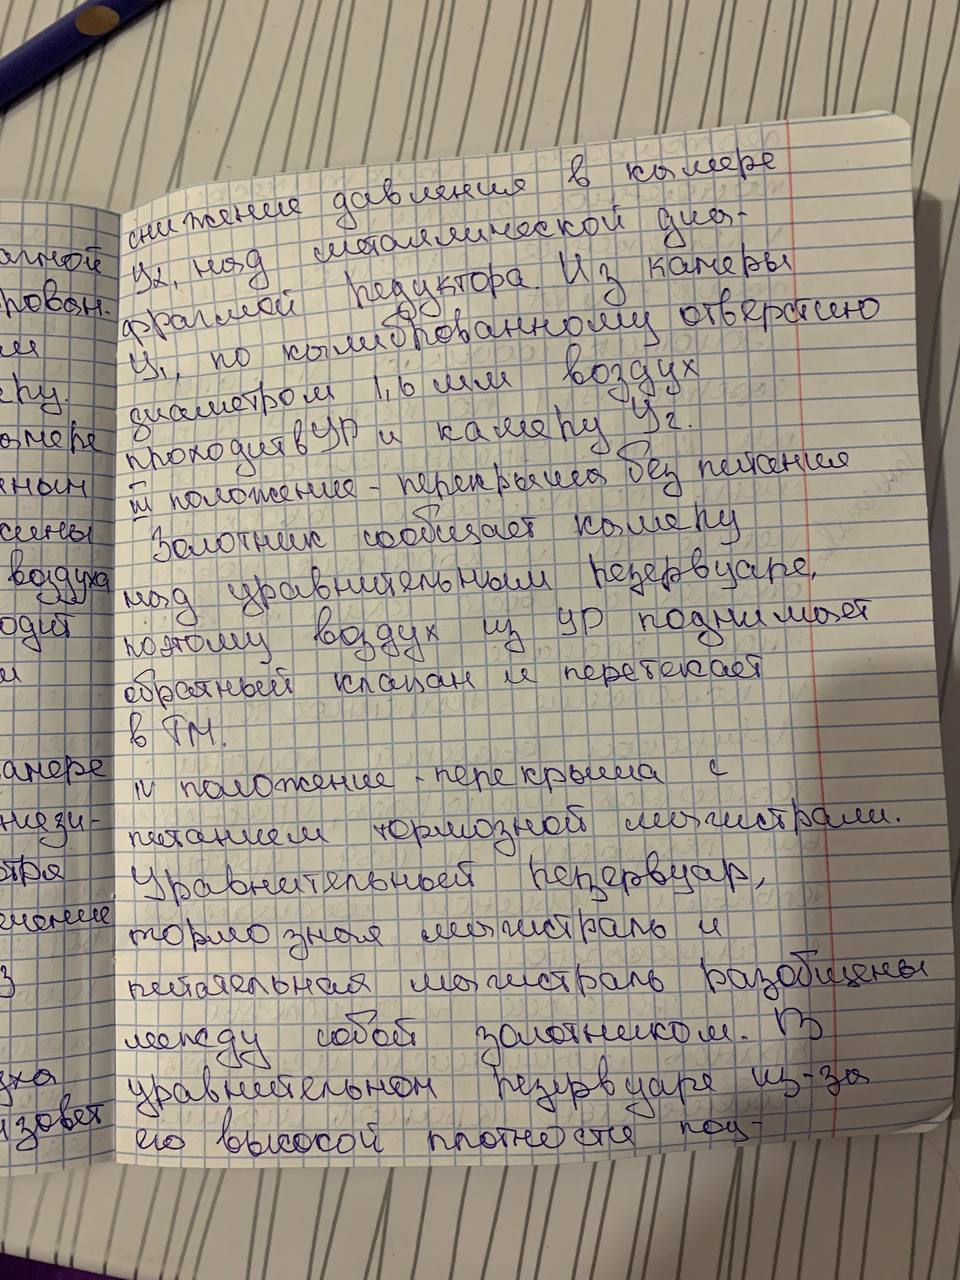 снижение давления в камере
У2, над металлической диа-
фрагмой редуктора. Из камеры
У1, по калиброванному отверстию
диаметром 1,6 мм воздух
проходит в УР и камеру У2.
III положение - перекрыша без питания
Золотник сообщает камеру
над уравнительным резервуаре,
поэтому воздух из УР поднимает
обратный клапан и перетекает
в ТМ.
IV положение - перекрыша с
питанием тормозной магистрали.
Уравнительный резервуар,
тормозная магистраль и
питательная магистраль разобщены
между собой золотником. В
уравнительном резервуаре из-за
его высокой плотности поу-
алной
рован-
ми
еру.
амере
сины
воздуха
одит
и
амере
ниези-
отря
ечение
з
уха
изовет